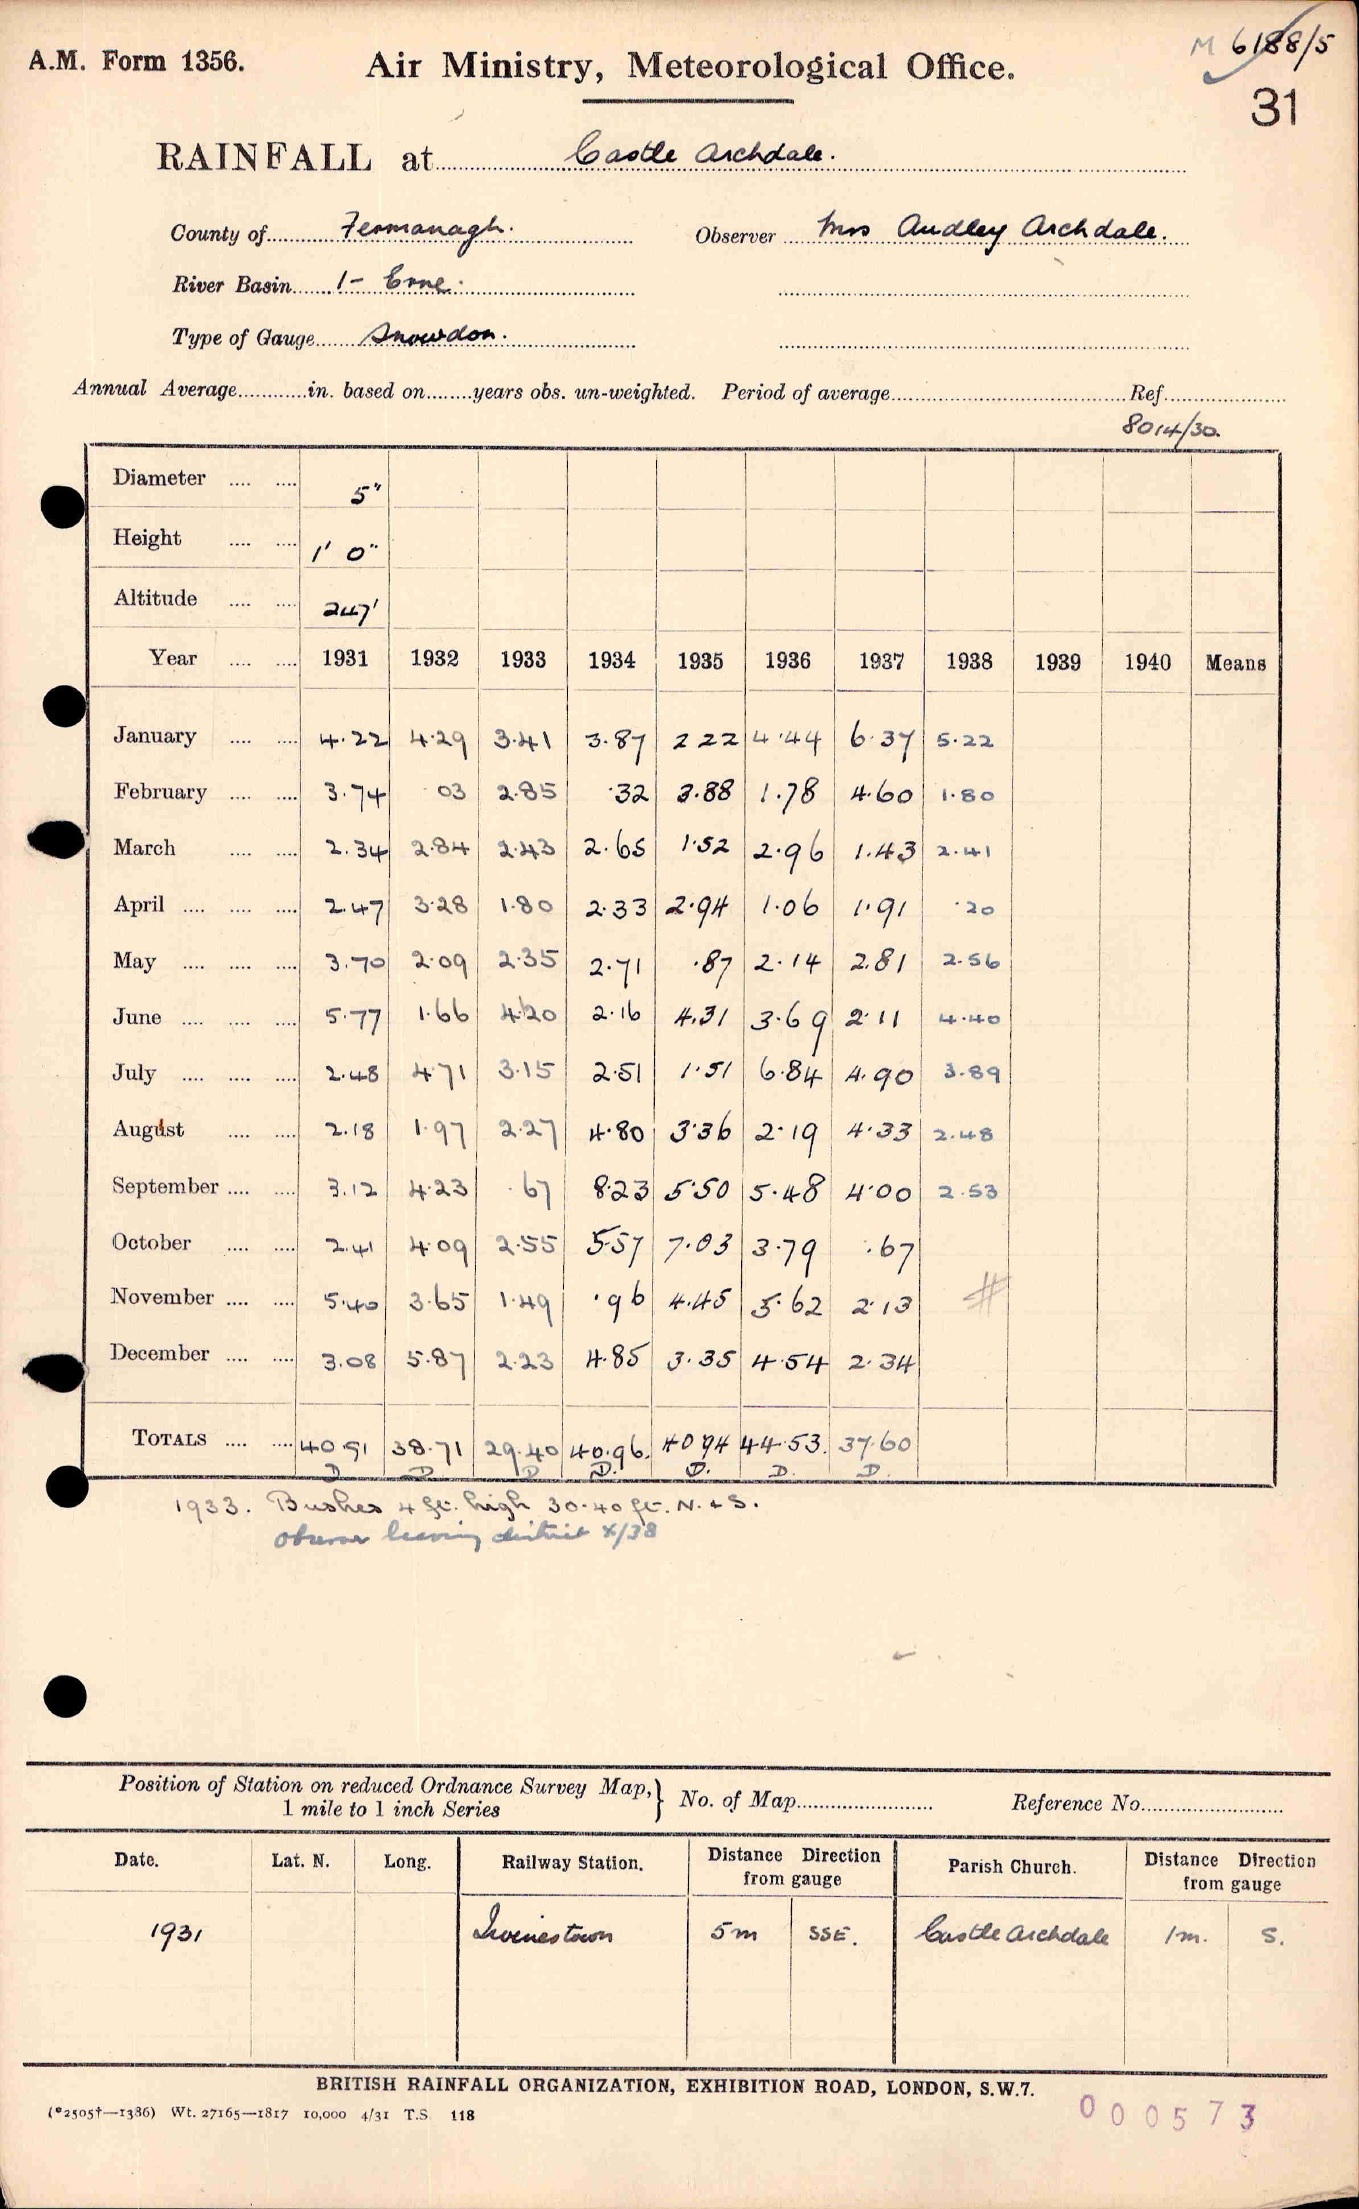 M 6188/5
A.M. Form 1356.
Air Ministry, Meteorological Office.
31
RAINFALL at Castle Archdale.
County of Fermanagh. Observer Mrs Audley Archdale.
River Basin 1- Erne.
Type of Gauge Snowdon.
Annual Average in. based on years obs. un-weighted. Period of average Ref.
8014/30.
Diameter 5"
Height 1' 0"
Altitude 247'
Year 1931 1932 1933 1934 1935 1936 1937 1938 1939 1940 Means
January 4.22 4.29 3.41 3.87 2 22 4.44 6.37 5.22
February 3.74 03 2.85 .32 3.88 1.78 4.60 1.80
March 2.34 2.84 2.43 2.65 1.52 2.96 1.43 2.41
April 2.47 3.28 1.80 2.33 2.94 1.06 1.91 .20
May 3.70 2.09 2.35 2.71 .87 2.14 2.81 2.56
June 5.77 1.66 4.20 2.16 4.31 3.69 2.11 4.40
July 2.48 4.71 3.15 2.51 1.51 6.84 4.90 3.89
August 2.18 1.97 2.27 4.80 3.36 2.19 4.33 2.48
September 3.12 4.23 .67 8.23 5.50 5.48 4.00 2.53
October 2.41 4.09 2.55 5.57 7.03 3.79 .67
November 5.40 3.65 1.49 .96 4.45 5.62 2.13 #
December 3.08 5.87 2.23 4.85 3.35 4.54 2.34
TOTALS 40.91 38.71 29.40 40.96. 40 94 44.53. 37.60
D D D D. D. D. D.
1933. Bushes 4 ft. high 30-40 ft. N. & S.
observer leaving district X/38
Position of Station on reduced Ordnance Survey Map, } No. of Map Reference No.
1 mile to 1 inch Series
Date. Lat. N. Long. Railway Station. Distance Direction from gauge Parish Church. Distance Direction from gauge
1931 Irvinestown 5m SSE. Castle Archdale 1m. S.
BRITISH RAINFALL ORGANIZATION, EXHIBITION ROAD, LONDON, S.W.7.
(*2505†—1386) Wt. 27165—1817 10,000 4/31 T.S. 118
000573